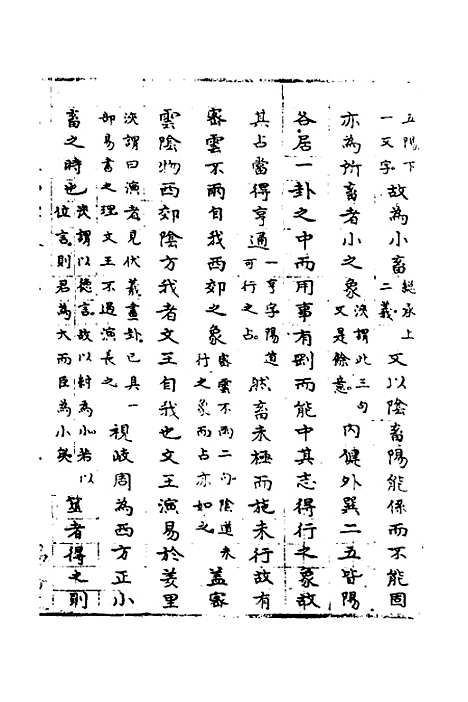 五陽下一又字故為小畜總承上二義又以陰畜陽能係而不能固
亦為所畜者小之象浹謂此三句又是餘意內健外巽二五皆陽
各居一卦之中而用事有剛而能中其志得行之象故
其占當得亨通一亨字陽道可行之占然畜未極而施未行故有
密雲不雨自我西郊之象密雲不雨二句陰道未行之象而占亦如之蓋密
雲陰物西郊陰方我者文王自我也文王演易於羑里
浹謂曰演者見伏羲畫卦已具一部易書之理文王不過演長之視岐周為西方正小
畜之時也浹謂以德言故以封為小若以位言則君為大而臣為小矣筮者得之則